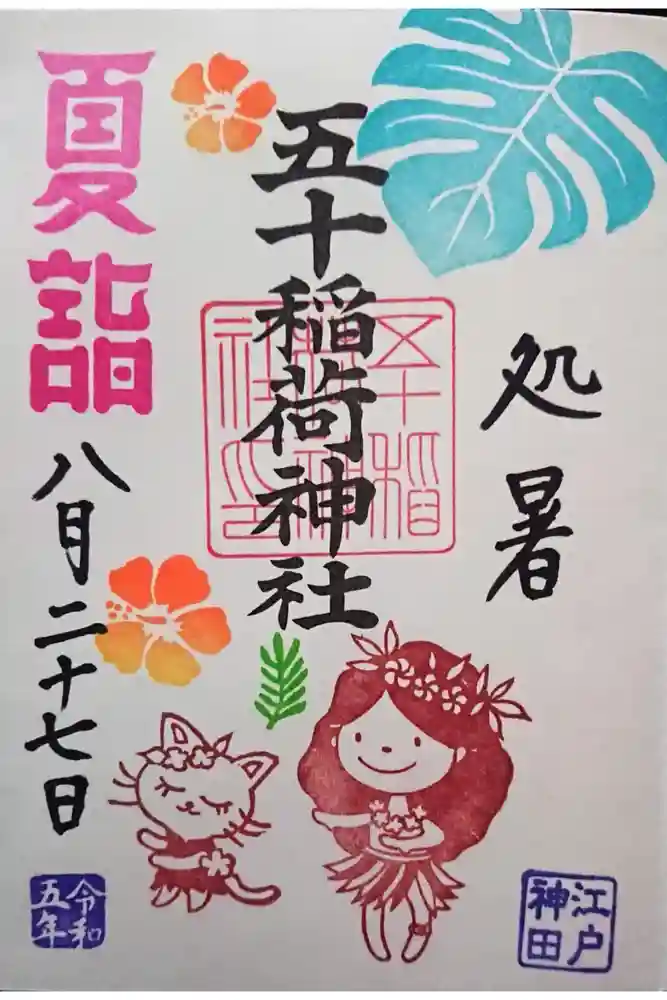 処暑
五十稲荷神社
五十稲
荷神
社
夏詣
八月二十七日
江戸
神田
令和
五年